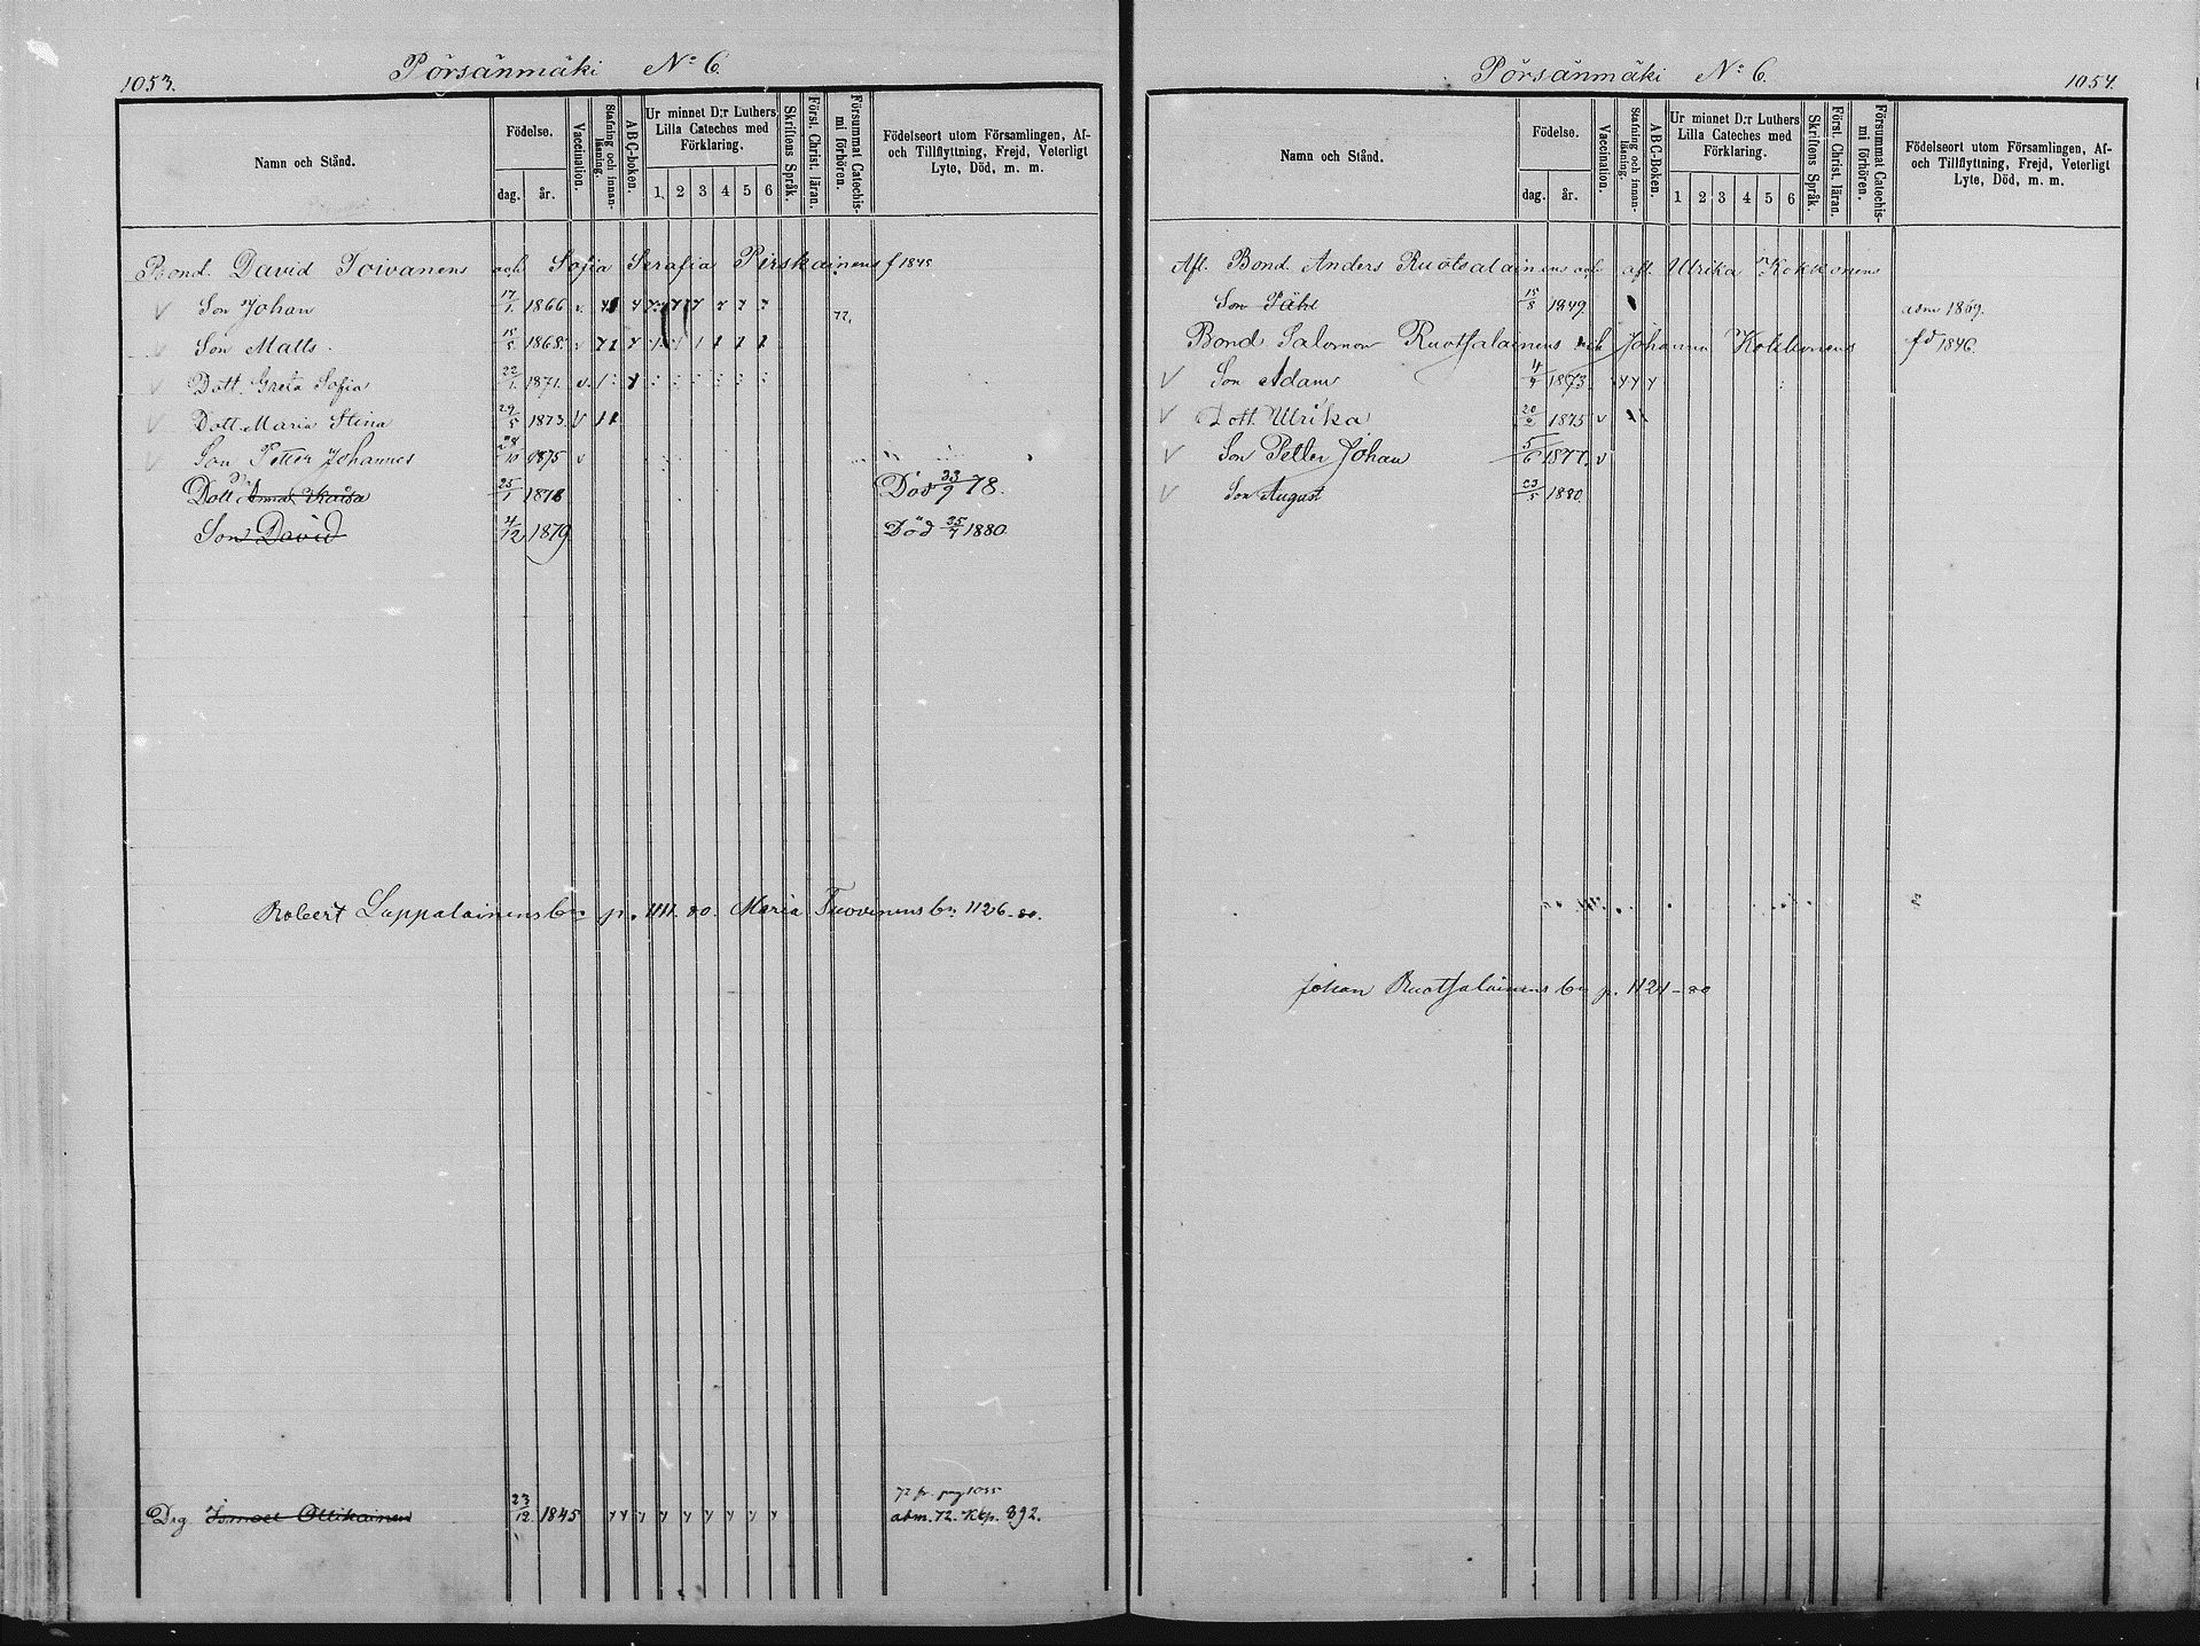 1053.
Pörsänmäki No 6.
Namn och Stånd.
Födelse.
dag.
år.
Vaccination.
Stafning och innanläsning.
ABC-boken.
Ur minnet D:r Luthers Lilla Cateches med Förklaring.
1 2 3 4 5 6
Skriftens Språk.
Först. Christ. läran.
Försummat Catechismi förhören.
Födelseort utom Församlingen, Af- och Tillflyttning, Frejd, Veterligt Lyte, Död, m. m.
Bond. David Toivanens och Sofia Serafia Pirskainens f 1845
Son Johan 17/1 1866 72,
Son Matts 15/5 1868.
Dott. Greta Sofia 22/1 1871. v.
Dott. Maria Stina 29/5 1873 V
Son Petter Johannes 28/10 1875 v
Dott Anna Kaisa 25/1 1878 Död 23/9 78.
Son David 4/12 1879 Död 25/7 1880
Robert Lappalainens bn: p. 1111. 80. Maria Tuovinens bn: 1126-80.
Drg 23/12. 1845 72 fr. pag 1035
abm. 72. Ktp. 892.
Pörsänmäki No 6.
1054.
Namn och Stånd.
Födelse.
dag.
år.
Vaccination.
Stafning och innanläsning.
ABC-Boken.
Ur minnet D:r Luthers Lilla Cateches med Förklaring.
1 2 3 4 5 6
Skriftens Språk.
Först. Christ. läran.
Försummat Catechismi förhören.
Födelseort utom Församlingen, Af- och Tillflyttning, Frejd, Veterligt Lyte, Död, m. m.
Afl. Bond. Anders Ruotsalainens och afl. Ulrika Kokkonens
Son 15/8 1849. adm 1869.
Bond Salomon Ruotsalainens och Johanna Kokkonens fd 1846.
Son Adam 4/4 1873
Dott. Ulrika 20/2 1875 v
Son Petter Johan 5/6 1877. v
Son August 23/5 1880.
Johan Ruotsalainens bn p. 1121-80